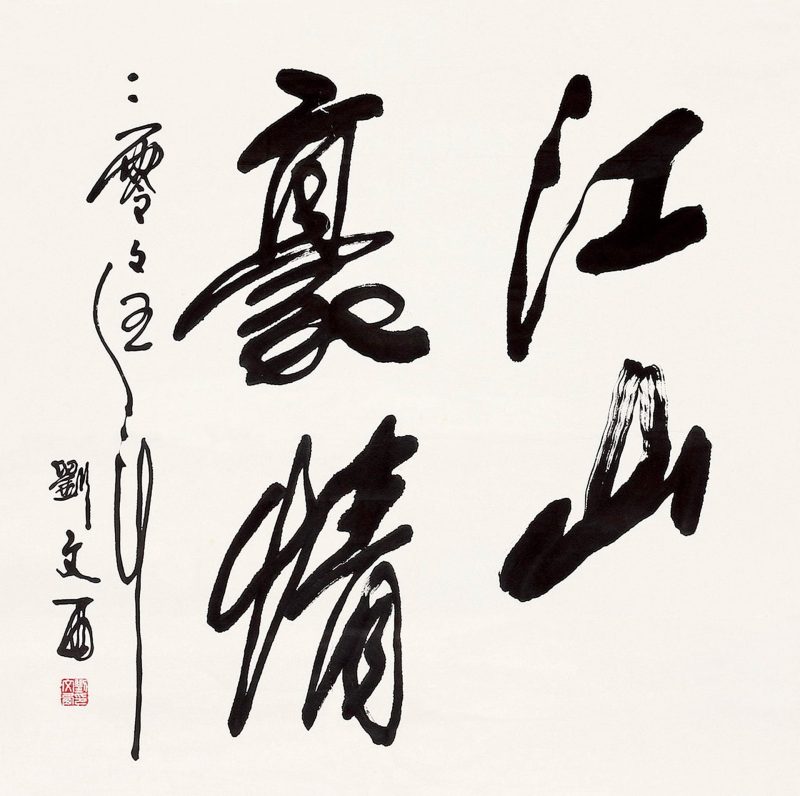 江山
豪情
二零々伍年
劉文西